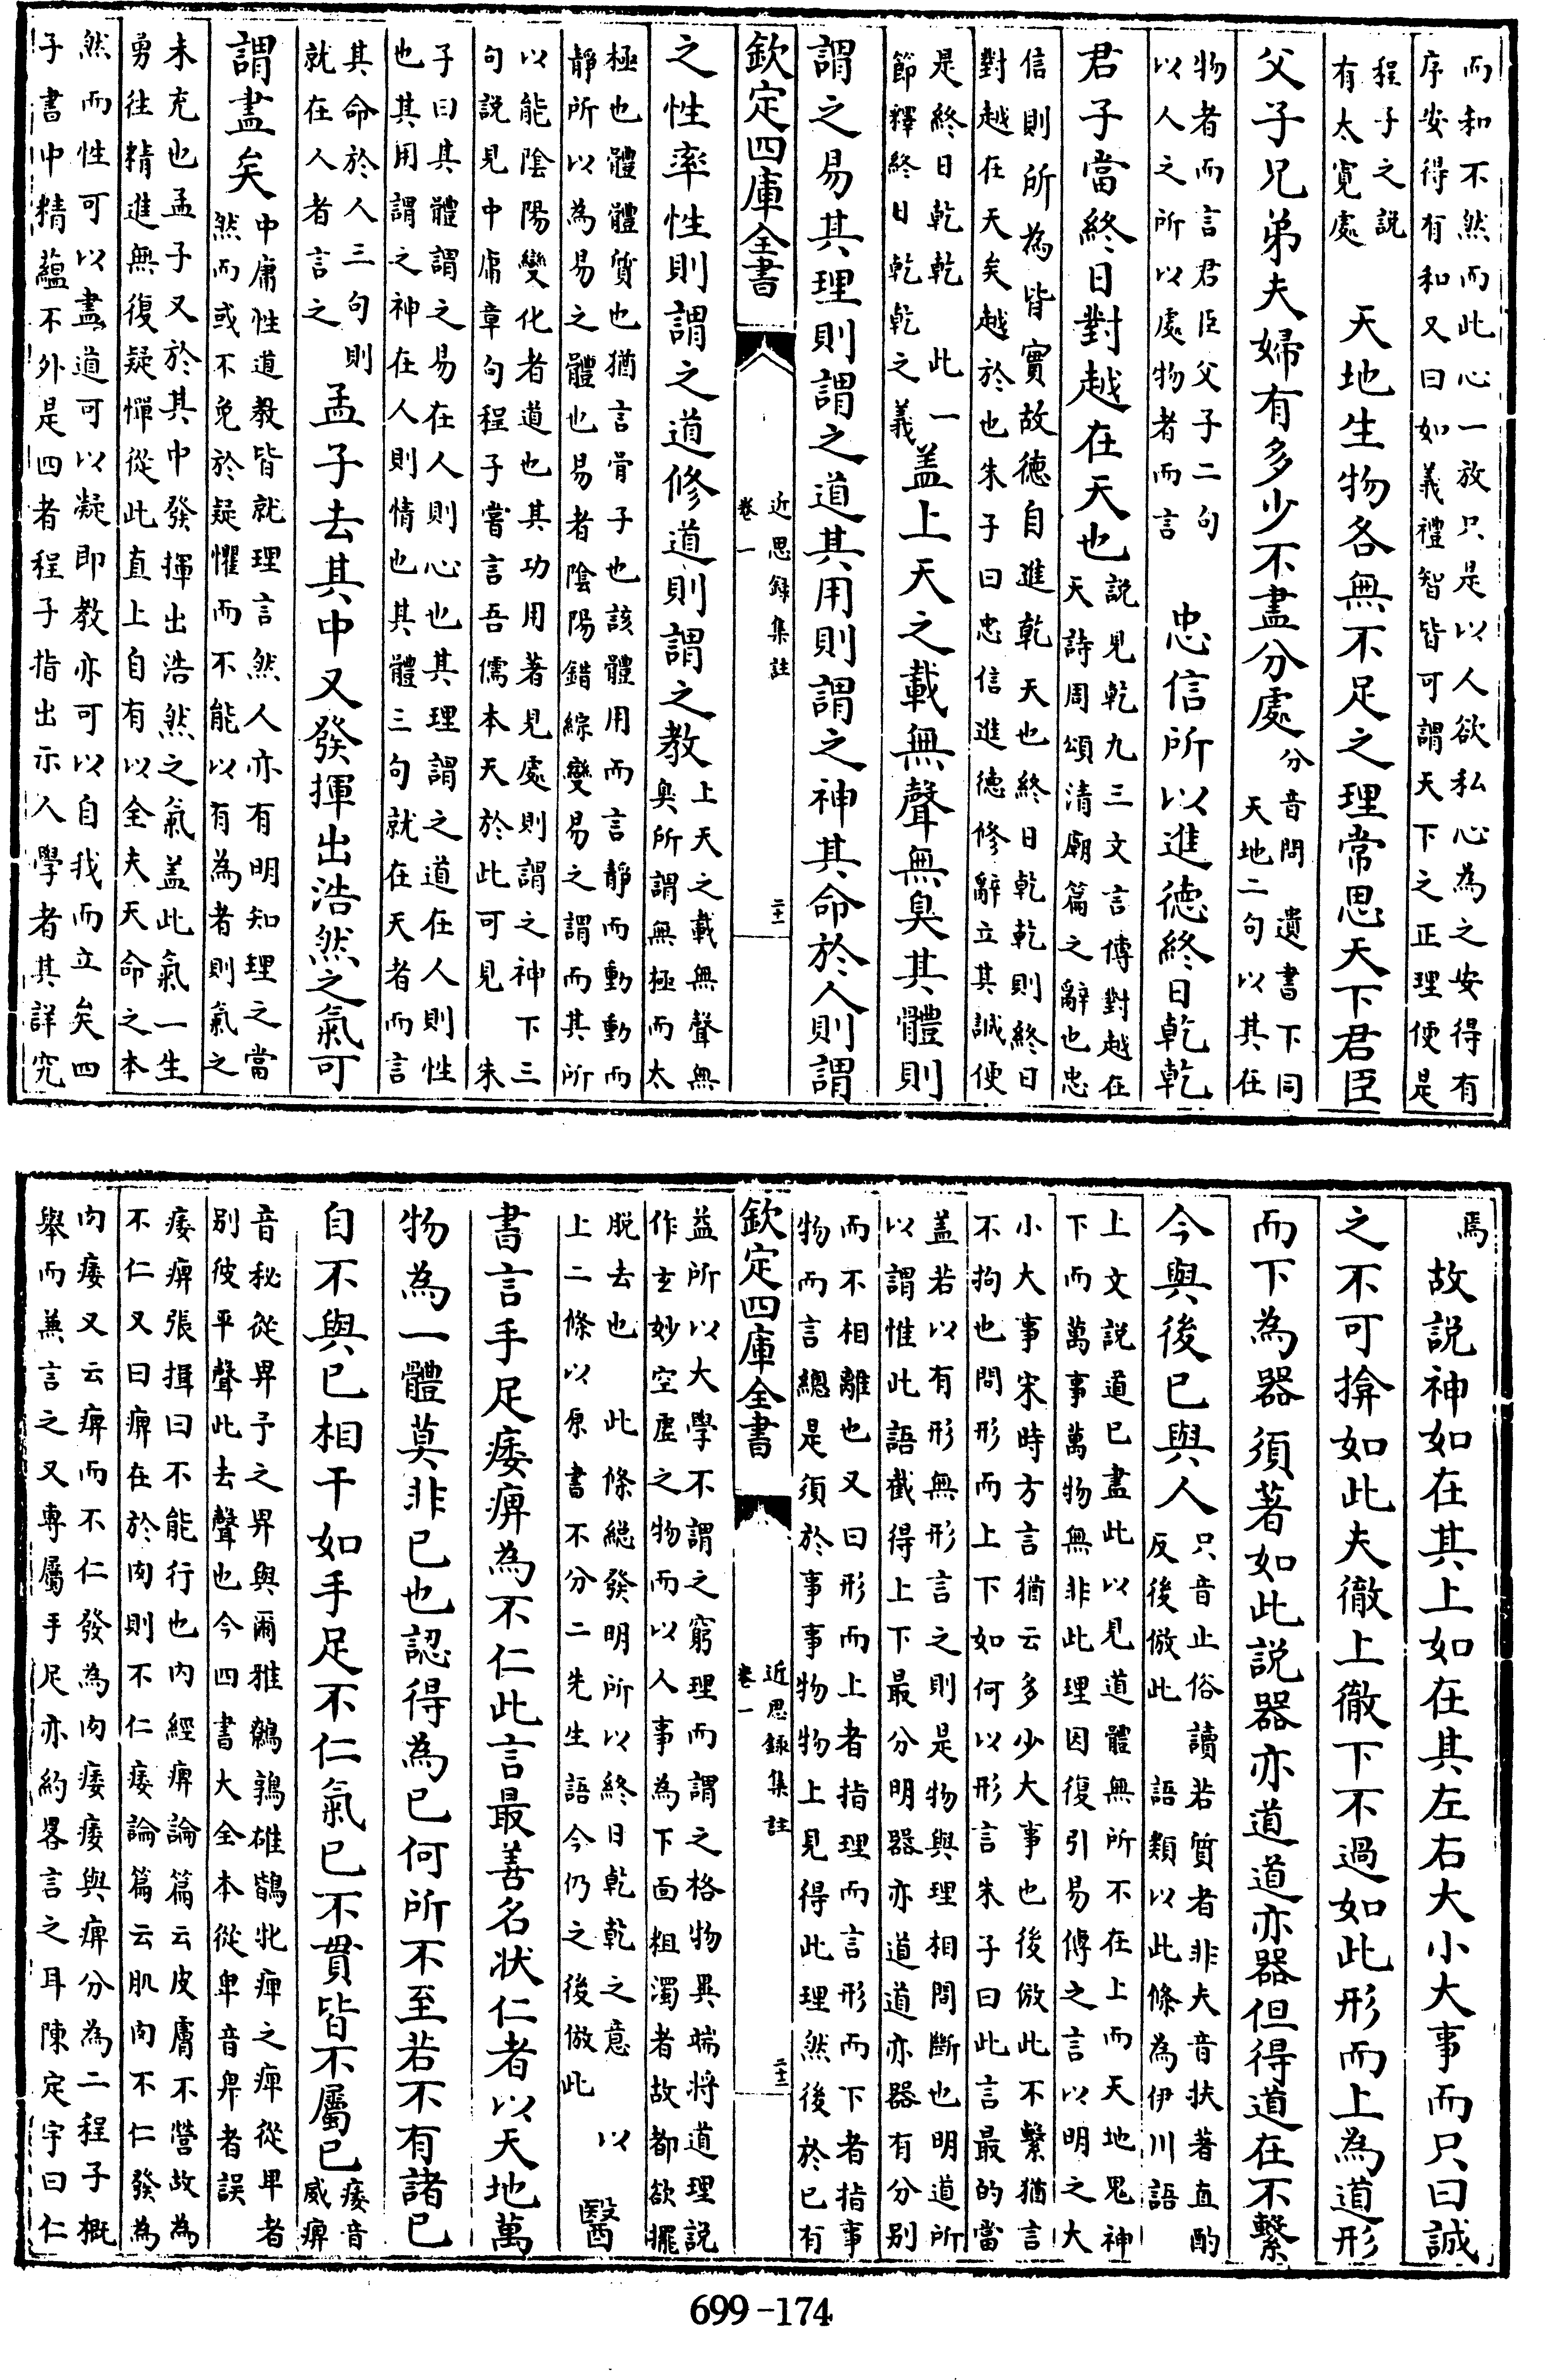 而和不然而此心一放只是以人欲私心為之安得有
序安得有和又曰如義禮智皆可謂天下之正理便是
程子之説
有太寛處
天地生物各無不足之理常思天下君臣
父子兄弟夫婦有多少不盡分處
分音問 遺書下同
天地二句以其在
物者而言君臣父子二句
以人之所以處物者而言
忠信所以進徳終日乾乾
君子當終日對越在天也
説見乾九三文言傳對越在
天詩周頌清廟篇之辭也忠
信則所為皆實故徳自進乾天也終日乾乾則終日
對越在天矣越於也朱子曰忠信進徳修辭立其誠便
是終日乾乾 此一
節釋終日乾乾之義
盖上天之載無聲無臭其體則
謂之易其理則謂之道其用則謂之神其命於人則謂
欽定四庫全書
近思録集註
卷一
二十一
之性率性則謂之道修道則謂之教
上天之載無聲無
臭所謂無極而太
極也體體質也猶言骨子也該體用而言靜而動動而
靜所以為易之體也易者陰陽錯綜變易之謂而其所
以能陰陽變化者道也其功用著見處則謂之神下三
句説見中庸章句程子嘗言吾儒本天於此可見 朱
子曰其體謂之易在人則心也其理謂之道在人則性
也其用謂之神在人則情也其體三句就在天者而言
其命於人三句則
就在人者言之
孟子去其中又發揮出浩然之氣可
謂盡矣
中庸性道教皆就理言然人亦有明知理之當
然而或不免於疑懼而不能以有為者則氣之
未充也孟子又於其中發揮出浩然之氣盖此氣一生
勇往精進無復疑憚從此直上自有以全夫天命之本
然而性可以盡道可以凝即教亦可以自我而立矣四
子書中精蘊不外是四者程子指出示人學者其詳究
焉
故説神如在其上如在其左右大小大事而只曰誠
之不可揜如此夫徹上徹下不過如此形而上為道形
而下為器須著如此説器亦道道亦器但得道在不繫
今與後已與人
只音止俗讀若質者非夫音扶著直酌
反後倣此 語類以此條為伊川語
上文説道已盡此以見道體無所不在上而天地鬼神
下而萬事萬物無非此理因復引易傳之言以明之大
小大事宋時方言猶云多少大事也後倣此不繫猶言
不拘也問形而上下如何以形言朱子曰此言最的當
盖若以有形無形言之則是物與理相間斷也明道所
以謂惟此語截得上下最分明器亦道道亦器有分别
而不相離也又曰形而上者指理而言形而下者指事
物而言總是須於事事物物上見得此理然後於已有
欽定四庫全書
近思録集註
卷一
二十二
益所以大學不謂之窮理而謂之格物異端將道理説
作𤣥妙空虚之物而以人事為下面粗濁者故都欲擺
脱去也 此條總發明所以終日乾乾之意 以
上二條以原書不分二先生語今仍之後倣此
醫
書言手足痿痹為不仁此言最善名状仁者以天地萬
物為一體莫非已也認得為已何所不至若不有諸已
自不與已相干如手足不仁氣已不貫皆不屬已
痿音
威痹
音秘從畀予之畀與爾雅鷯鶉雄鶛牝痺之痺從卑者
别彼平聲此去聲也今四書大全本從卑音卑者誤
痿痹張揖曰不能行也内經痹論篇云皮膚不營故為
不仁又曰痹在於肉則不仁痿論篇云肌肉不仁發為
肉痿又云痹而不仁發為肉痿痿與痹分為二程子概
舉而兼言之又專屬手足亦約畧言之耳陳定宇曰仁
699-174